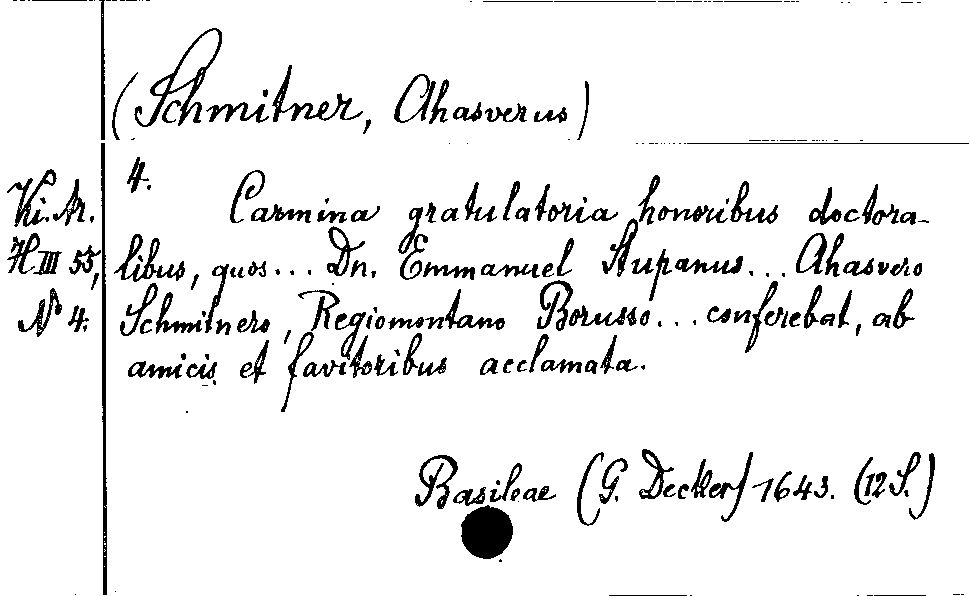 (Schmitner, Ahasverus)
4.
Ki. Ar.
H III 55,
No 4.
Carmina gratulatoria honoribus doctora-
libus, quos... Dn. Emmanuel Stupanus... Ahasvero
Schmitnero, Regiomontano Borusso... conferebat, ab
amicis et favitoribus acclamata.
Basileae (G. Decker) 1643. (12 S.)